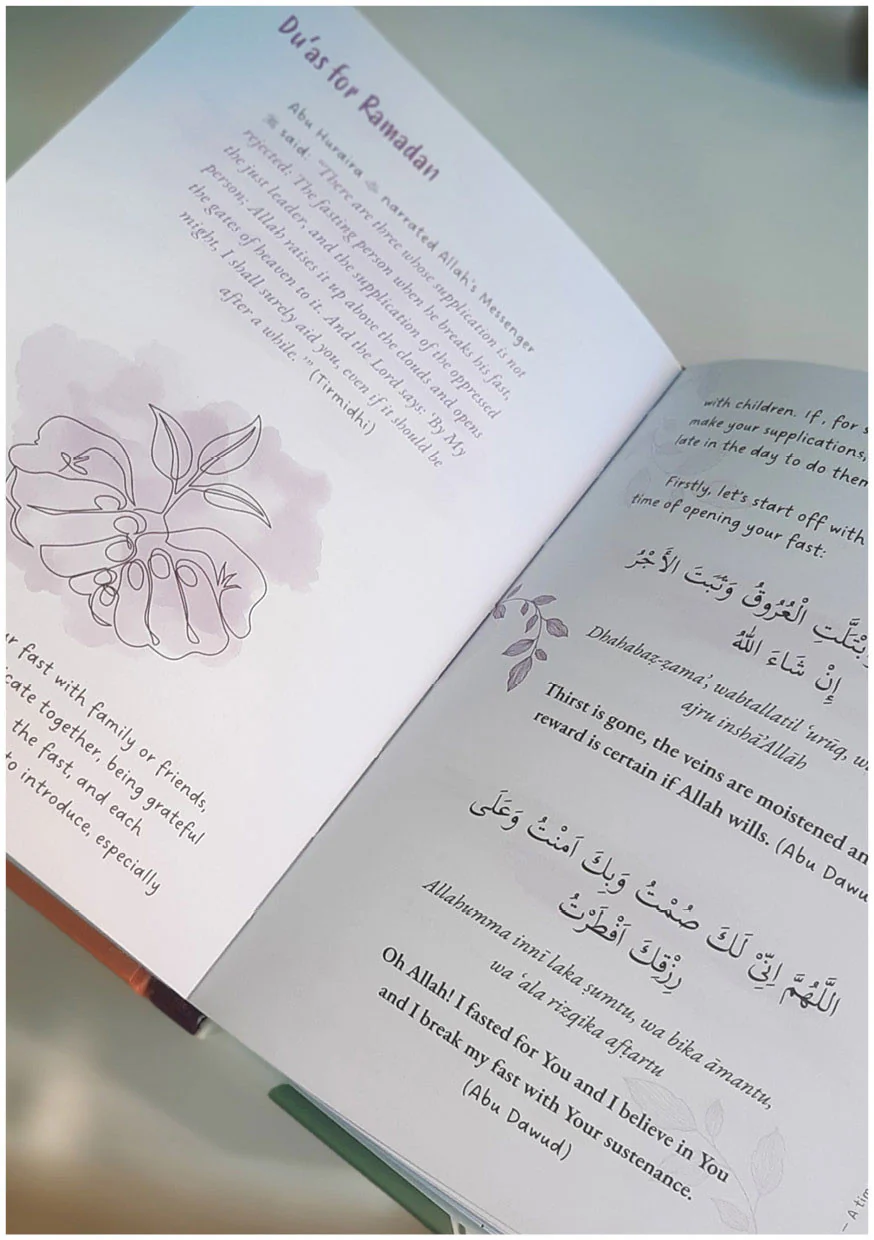 Du'as for Ramadan
Abu Huraira narrated Allah's Messenger
ﷺ said: "There are three whose supplication is not
rejected: The fasting person when he breaks his fast,
the just leader, and the supplication of the oppressed
person; Allah raises it up above the clouds and opens
the gates of heaven to it. And the Lord says: 'By My
might, I shall surely aid you, even if it should be
after a while.'" (Tirmidhi)
r fast with family or friends,
cate together, being grateful
the fast, and each
to introduce, especially
with children. If, for s
make your supplications,
late in the day to do then
Firstly, let's start off with
time of opening your fast:
وَابْتَلَّتِ الْعُرُوقُ وَثَبَتَ الأَجْرُ
إِنْ شَاءَ اللهُ
Dhahabaẓ-ẓama', wabtallatil 'urūq, w
ajru inshā'Allāh
Thirst is gone, the veins are moistened an
reward is certain if Allah wills. (Abu Dawu
اَللَّهُمَّ اِنِّيْ لَكَ صُمْتُ وَبِكَ اَمَنْتُ وَعَلَى
رِزْقِكَ اَفْطَرْتُ
Allahumma innī laka ṣumtu, wa bika āmantu,
wa 'ala rizqika afṭartu
Oh Allah! I fasted for You and I believe in You
and I break my fast with Your sustenance.
(Abu Dawud)
— A tim